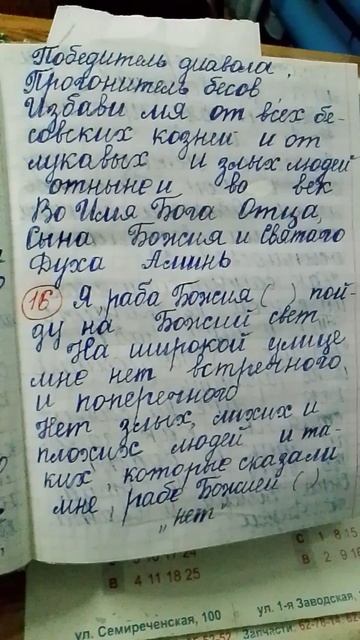 Победитель диавола,
Прогонитель бесов
Избави мя от всех бе-
совских козней и от
лукавых и злых людей
отныне и во век
Во Имя Бога Отца,
Сына Божия и Святаго
Духа Аминь
16 Я раба Божия ( ) пой-
ду на Божий свет,
На широкой улице
мне нет встречного,
и поперечного
Нет злых, лихих и
плохих людей и та-
ких, которые сказали
мне, рабе Божией ( )
„нет"
С 1 8 15
В 4 11 18 25
В 2 9 16
ул. Семиреченская, 100
ул. 1-я Заводская,
Запчасти: